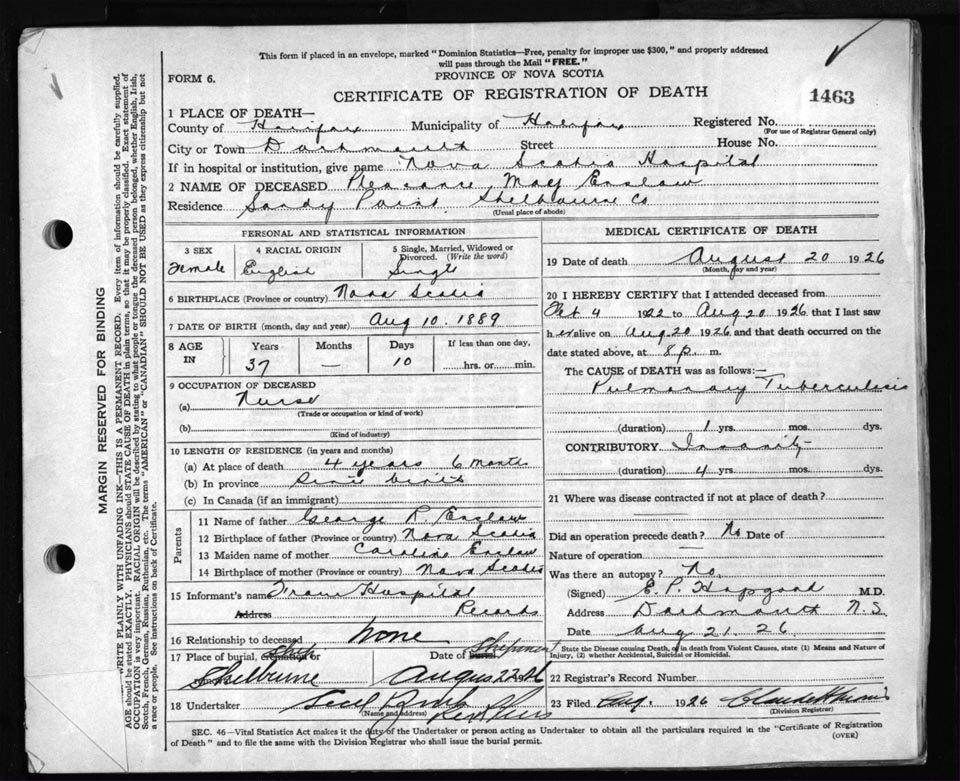 This form if placed in an envelope, marked "Dominion Statistics—Free, penalty for improper use $300," and properly addressed
will pass through the Mail "FREE."
FORM 6.
PROVINCE OF NOVA SCOTIA
CERTIFICATE OF REGISTRATION OF DEATH
1463
MARGIN RESERVED FOR BINDING
WRITE PLAINLY WITH UNFADING INK—THIS IS A PERMANENT RECORD. Every item of information should be carefully supplied.
AGE should be stated EXACTLY. PHYSICIANS should STATE CAUSE OF DEATH in plain terms, so that it may be properly classified. Exact statement of
OCCUPATION is very important. RACIAL ORIGIN will be described by stating to what people or tongue the deceased person belonged, whether English, Irish,
Scotch, French, German, Russian, Ruthenian, etc. The terms "AMERICAN" or "CANADIAN" SHOULD NOT BE USED as they express citizenship but not
a race or people. See instructions on back of Certificate.
1 PLACE OF DEATH—
County of Halifax Municipality of Halifax Registered No.
(For use of Registrar General only)
City or Town Dartmouth Street House No.
If in hospital or institution, give name Nova Scotia Hospital
2 NAME OF DECEASED Pleasance May Enslow
Residence Sandy Point Shelbourne Co
(Usual place of abode)
PERSONAL AND STATISTICAL INFORMATION
3 SEX 4 RACIAL ORIGIN 5 Single, Married, Widowed or
Divorced. (Write the word)
Female English Single
6 BIRTHPLACE (Province or country) Nova Scotia
7 DATE OF BIRTH (month, day and year) Aug 10. 1889
8 AGE IN Years Months Days If less than one day,
37 — 10 hrs. or min.
9 OCCUPATION OF DECEASED
(a) Nurse
(Trade or occupation or kind of work)
(b)
(Kind of industry)
10 LENGTH OF RESIDENCE (in years and months)
(a) At place of death 4 years 6 months
(b) In province Since birth
(c) In Canada (if an immigrant)
Parents
11 Name of father George P. Enslow
12 Birthplace of father (Province or country) Nova Scotia
13 Maiden name of mother Caroline Enslow
14 Birthplace of mother (Province or country) Nova Scotia
15 Informant's name From Hospital
Address Records
16 Relationship to deceased None
17 Place of burial, cremation or Date of burial Shipment
Shelburne August 22nd 26
18 Undertaker
(Name and address)
MEDICAL CERTIFICATE OF DEATH
19 Date of death August 20 1926
(Month, day and year)
20 I HEREBY CERTIFY that I attended deceased from
4 1922 to Aug 20 1926 that I last saw
her alive on Aug 20 1926 and that death occurred on
date stated above, at 8 p. m.
The CAUSE of DEATH was as follows:—
Pulmonary Tuberculosis
(duration) 1 yrs. mos. dys.
CONTRIBUTORY Insanity
(duration) 4 yrs. mos. dys.
21 Where was disease contracted if not at place of death?
Did an operation precede death? No Date of
Nature of operation
Was there an autopsy? No.
(Signed) E. P. Hopgood M.D.
Address Dartmouth N.S
Date Aug 21. 26.
State the Disease causing Death, or in death from Violent Causes, state (1) Means and Nature of
Injury, (2) whether Accidental, Suicidal or Homicidal.
22 Registrar's Record Number
23 Filed Aug. 1926
(Division Registrar)
SEC. 46—Vital Statistics Act makes it the duty of the Undertaker or person acting as Undertaker to obtain all the particulars required in the "Certificate of Registration
of Death" and to file the same with the Division Registrar who shall issue the burial permit.
(OVER)